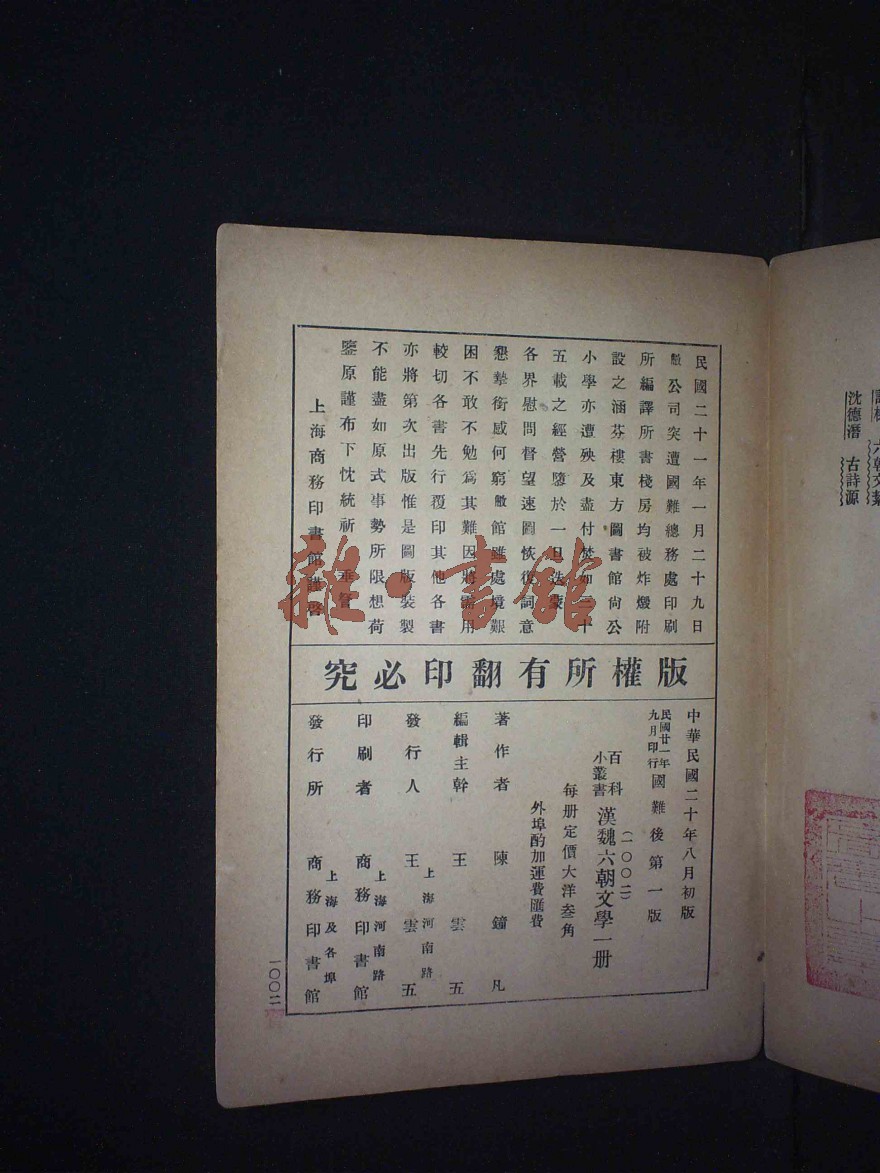 沈德潛 古詩源
六朝文絜
民國二十一年一月二十九日
敝公司突遭國難總務處印刷
所編譯所書棧房均被炸燬附
設之涵芬樓東方圖書館尚公
小學亦遭殃及盡付焚如三十
五載之經營隳於一旦迭蒙
各界慰問督望速圖恢復詞意
懇摯銜感何窮敝館雖處境艱
困不敢不勉爲其難因將需用
較切各書先行覆印其他各書
亦將第次出版惟是圖版裝製
不能盡如原式事勢所限想荷
鑒原謹布下忱統祈垂詧
上海商務印書館謹啓
版權所有翻印必究
中華民國二十年八月初版
民國廿一年九月印行國難後第一版
(一〇〇二)
百科小叢書漢魏六朝文學一册
每册定價大洋叁角
外埠酌加運費匯費
著作者 陳鐘凡
編輯主幹 王雲五
發行人 上海河南路 王雲五
印刷者 上海河南路 商務印書館
發行所 上海及各埠 商務印書館
一〇〇二
雜·書館